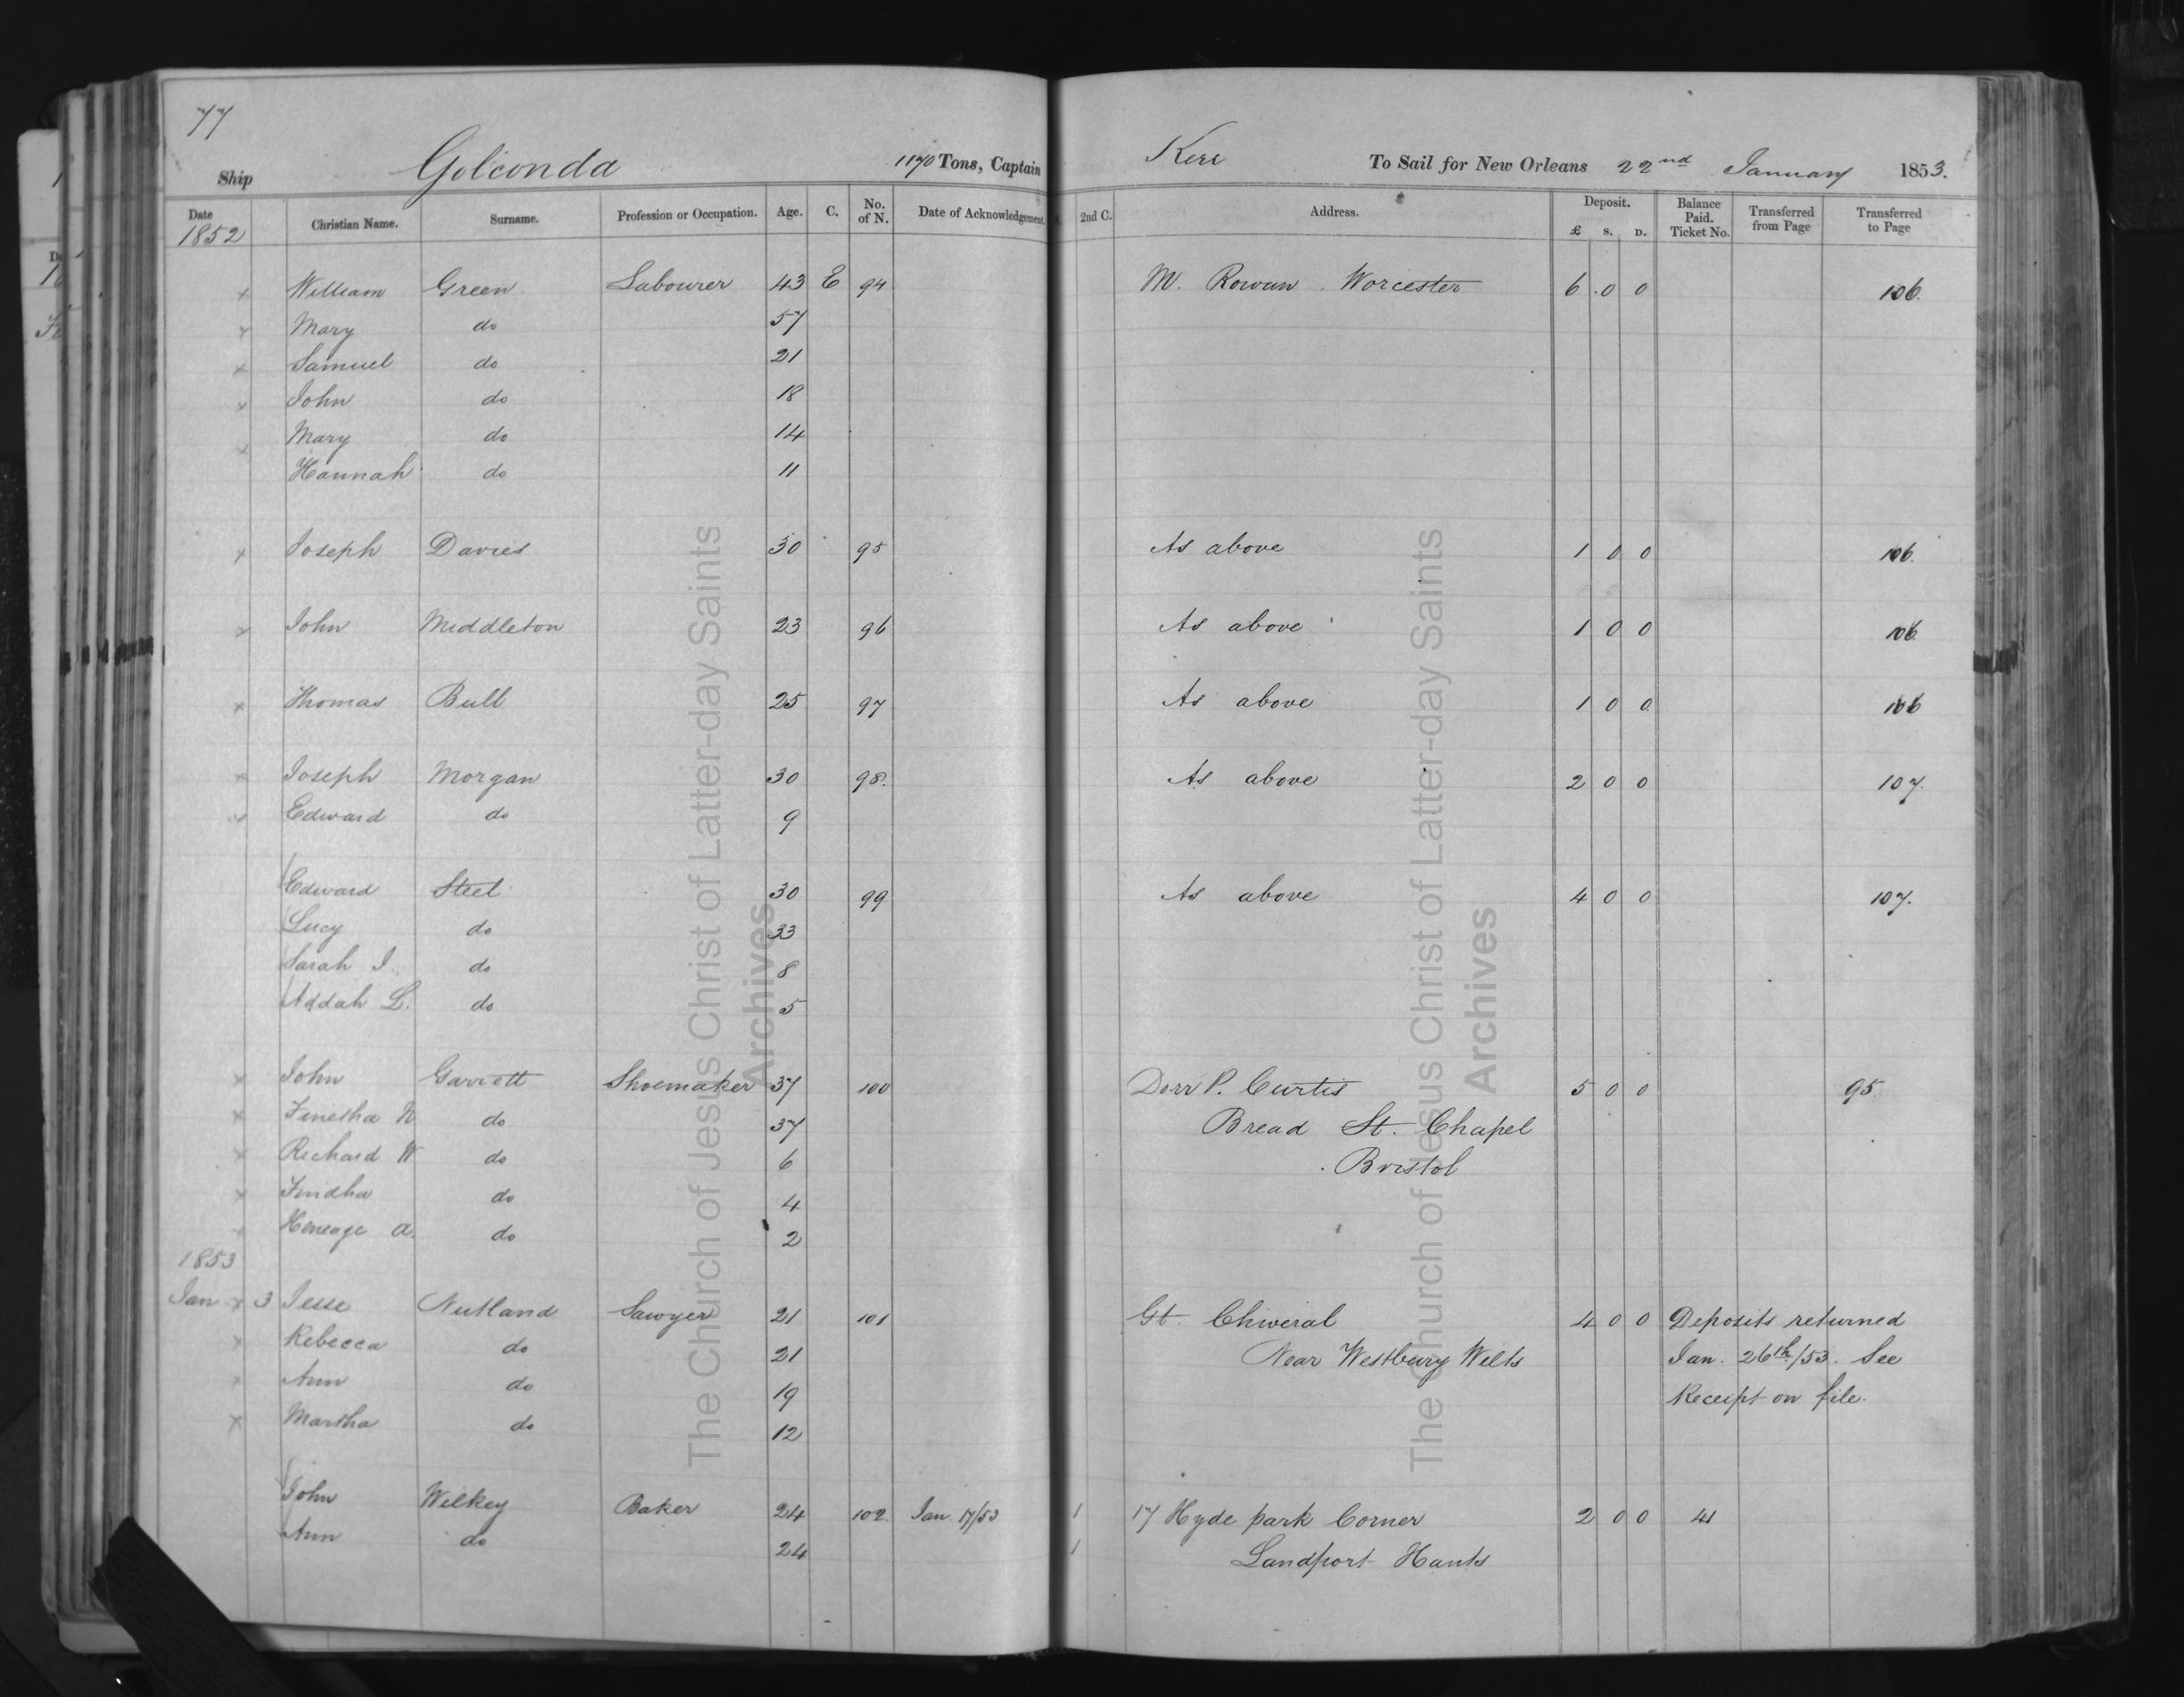 77
Ship Golconda 1170 Tons, Captain Kerr To Sail for New Orleans 22nd January 1853.
Date 1852 Christian Name. Surname. Profession or Occupation. Age. C. No. of N. Date of Acknowledgement. 2nd C. Address. Deposit. £ S. D. Balance Paid. Ticket No. Transferred from Page Transferred to Page
x William Green Labourer 43 E 94 M. Rowan Worcester 6 0 0 106.
x Mary do 57
x Samuel do 21
x John do 18
x Mary do 14
Hannah do 11
x Joseph Davies 30 95 As above 1 0 0 106.
x John Middleton 23 96 As above 1 0 0 106
x Thomas Bull 25 97 As above 1 0 0 106
x Joseph Morgan 30 98. As above 2 0 0 107.
x Edward do 9
Edward Steel 30 99 As above 4 0 0 107.
Lucy do 33
Sarah J. do 8
Addah L. do 5
x John Garrett Shoemaker 37 100 Dorr P. Curtis 5 0 0 95.
x do 37 Bread St. Chapel
x Richard W do 6 Bristol
x do 4
x Heneage A. do 2
1853
Jan x 3 Jesse Nutland Sawyer 21 101 Gt. Chiveral 4 0 0 Deposits returned
x Rebecca do 21 Near Westbury Wilts Jan. 26th/53. See
x Ann do 19 Receipt on file.
x Martha do 12
John Wilkey Baker 24 102. Jan 17/53 1 17 Hyde park Corner 2 0 0 41
Ann do 24 1 Landport Hants
The Church of Jesus Christ of Latter-day Saints
Archives
The Church of Jesus Christ of Latter-day Saints
Archives